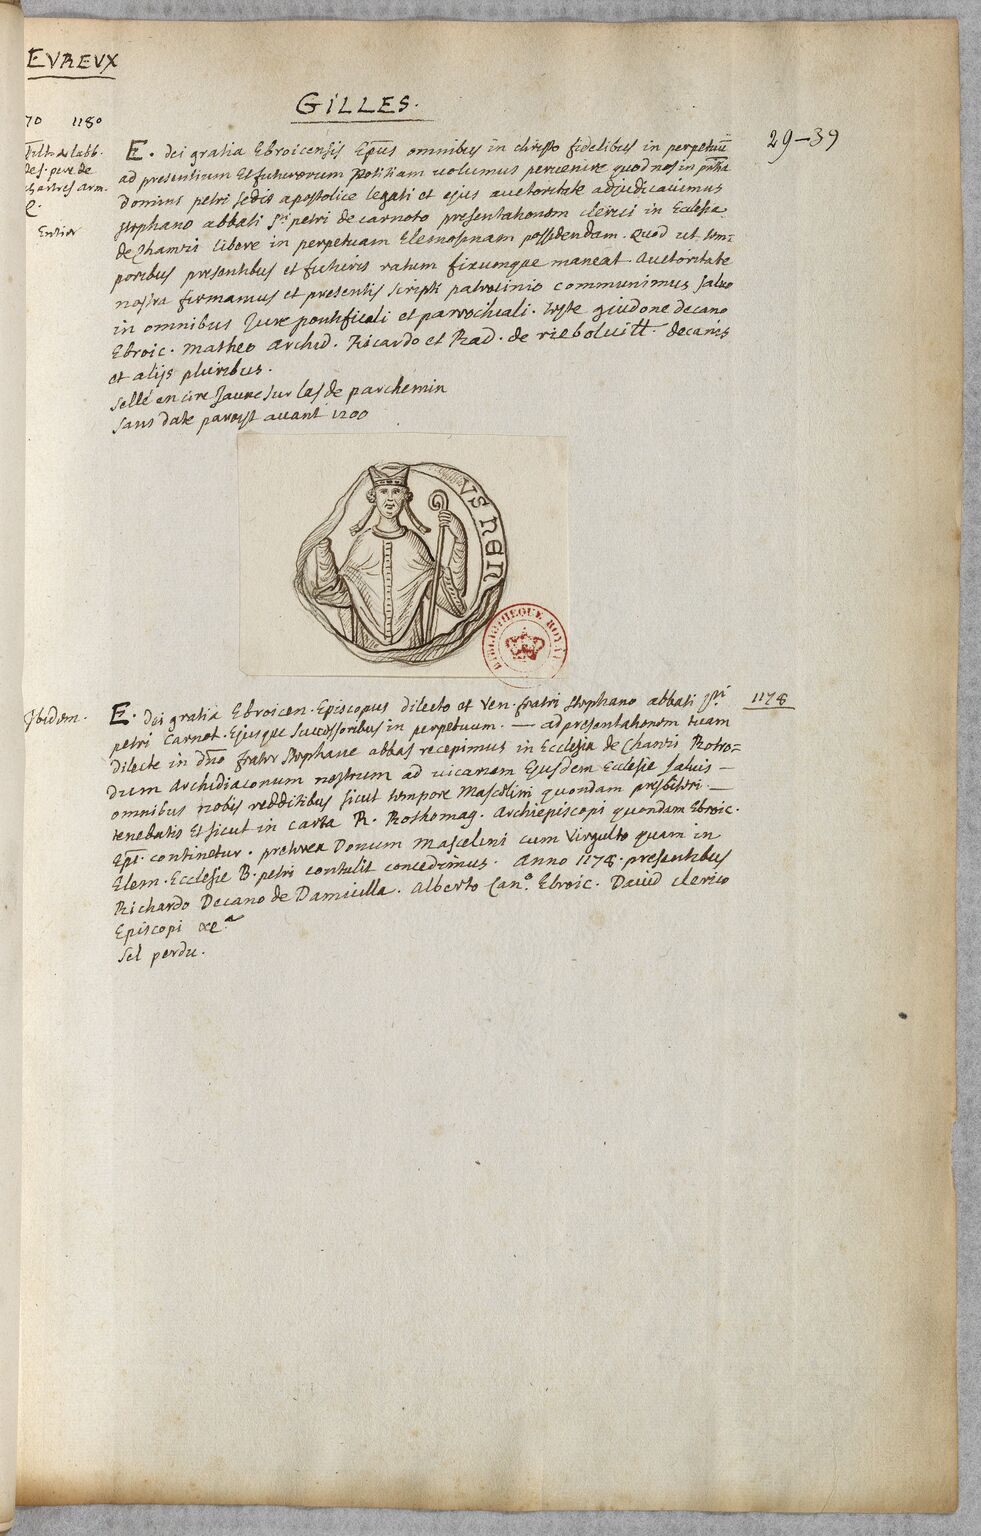 EVREVX
GILLES.
70 1180
29-39
Tiltre de l'abb.
de S. pere de
chartres arm.
Entier
E. dei gratia Ebroicensis Epūs omnibus in christo fidelibus in perpetuū
ad presentium et futurorum Notitiam volumus pervenire quod nos in pn̄tia
Domini petri sedis apostolice legati et ejus auctoritate adjudicavimus
stephano abbati Sti petri de carnoto presentationem clerici in Ecclesia
de Chamis libere in perpetuam Elemosinam possidendam. quod ut tem=
poribus presentibus et futuris ratum fixumque maneat. auctoritate
nostra firmamus et presentis scripti patrocinio communimus salvo
in omnibus Jure pontificali et parrochiali. teste giudone decano
Ebroic. matheo archid. Ricardo et Rad. de
et alijs pluribus.
sellé en cire Jaune sur las de parchemin
sans date paroist avant 1200
VS HEN
BIBLIOTHEQUE ROYALE
Ibidem.
1178
E. dei gratia Ebroicen. Episcopus dilecto et ven. fratri stephano abbati Sti
petri Carnot. Ejusque successoribus in perpetuum. — ad presentationem tuam
Dilecte in dno frater stephane abbas recepimus in Ecclesia de Chamis Rotro=
dum Archidiaconum nostrum ad vicariam Ejusdem Ecclesie salvis —
omnibus nobis redditibus sicut tempore Mascelini quondam presbiteri —
tenebatis Et sicut in carta R. Rothomag. Archiepiscopi quondam Ebroic.
Epi. continetur. preterea Donum Mascelini cum virgulto quam in
Elem. Ecclesie B. petri contulit concedimus. Anno 1178. presentibus
Richardo Decano de Damivilla. Alberto Cano. Ebroic. David clerico
Episcopi &c.a
Sel perdu.